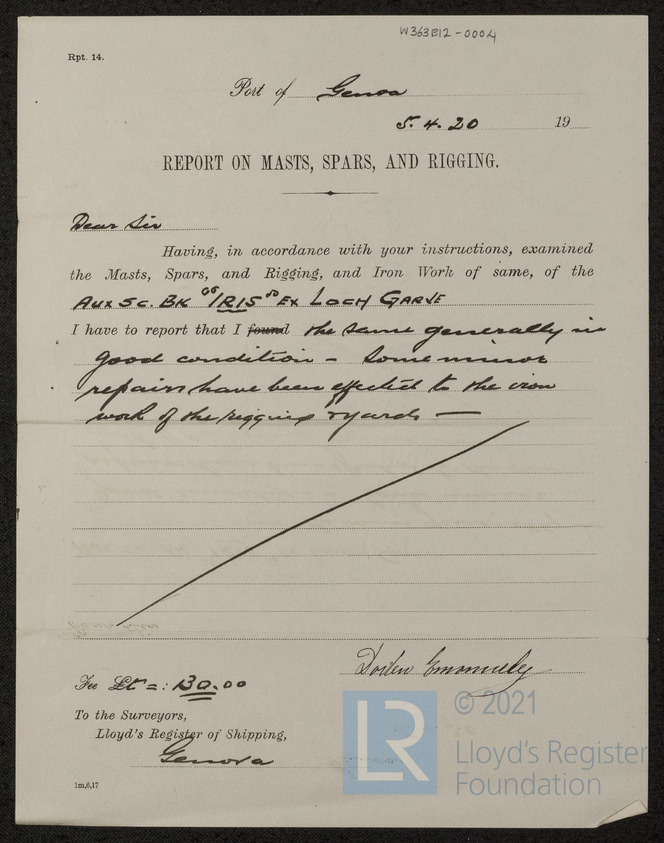 W363B12-0004
Rpt. 14.
Port of Genoa
5.4.20 19
REPORT ON MASTS, SPARS, AND RIGGING.
Dear Sir
Having, in accordance with your instructions, examined
the Masts, Spars, and Rigging, and Iron Work of same, of the
Aux Sc. Bk "IRIS" ex Loch Garve
I have to report that I found the same generally in
good condition – Some minor
repairs have been effected to the iron
work of the rigging & yards —
Fee Lt =: 130.00
To the Surveyors,
Lloyd's Register of Shipping,
Genova
1m,6,17
LR
© 2021
Lloyd's Register
Foundation